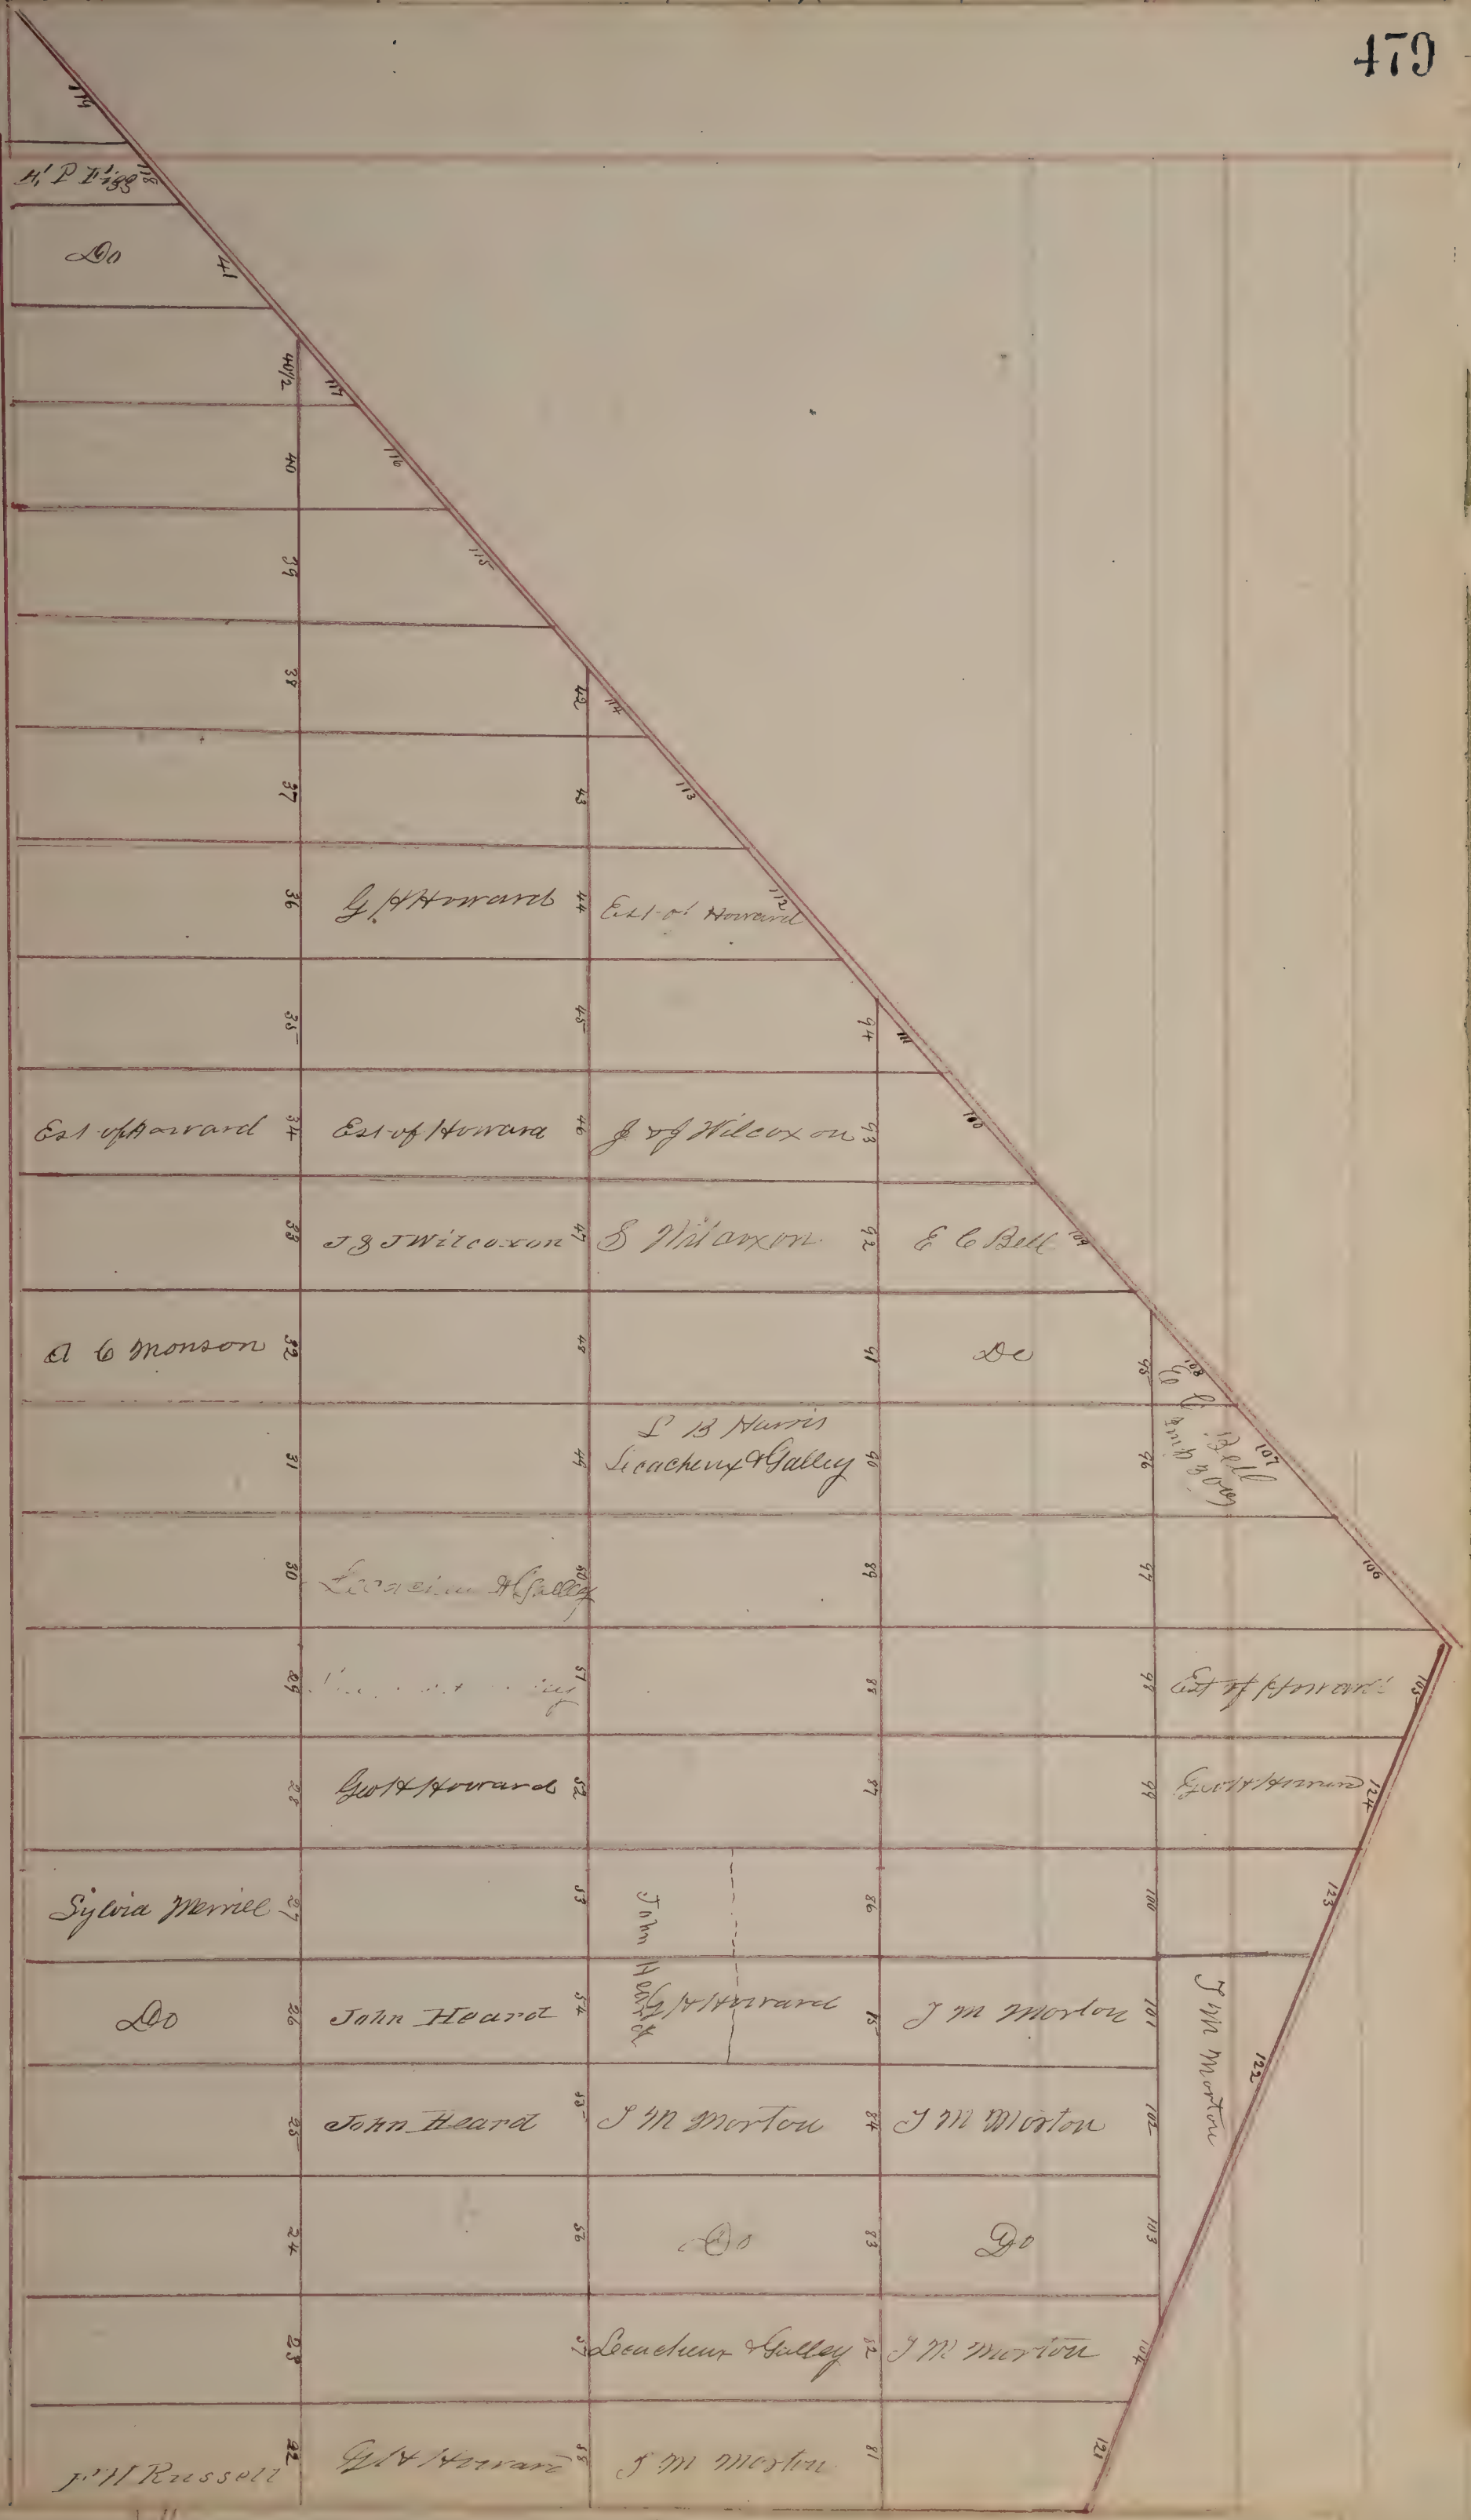 479
119
H. P. Figg 118
Do 41
40½ 117
40 116
39 115
38 42 114
37 43 113
36 G H Howard 44 Est of Howard 112
35 45 94 111
Est of Howard 34 Est of Howard 46 J & J Wilcoxon 93 100
33 J & J Wilcoxon 47 S Wilcoxon 92 E C Bell 109
A C Monson 32 48 91 Do 95 108
E C Bell
31 49 L B Harris 90 96 107
Lecacheux & Galley
30 & Galley 50 89 97 106
29 51 88 98 Est of Howard 105
28 Geo H Howard 52 87 99 Geo H Howard 124
Sylvia Merrill 27 53 John Heard 86 100 123
Do 26 John Heard 54 G H Howard 85 J M Morton 101 J M Morton 122
25 John Heard 55 J M Morton 84 J M Morton 102
24 56 Do 83 Do 103
23 57 Lecacheux & Galley 82 J M Morton 104
H Russell 22 G H Howard 58 J M Morton 81 121